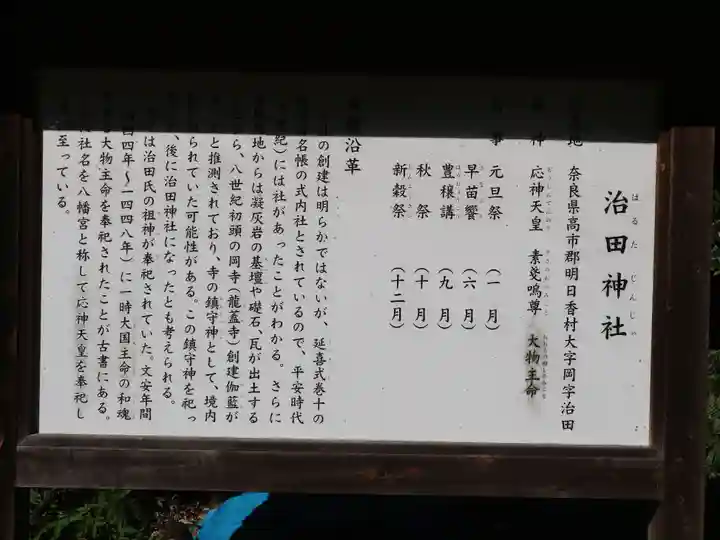 治田神社
はるたじんじゃ
地 奈良県高市郡明日香村大字岡字治田
神 応神天皇 素戔嗚尊 大物主命
事 元旦祭 （一月）
早苗饗 （六月）
豊穣講 （九月）
秋祭 （十月）
新穀祭 （十二月）
沿革
の創建は明らかではないが、延喜式巻十の
名帳の式内社とされているので、平安時代
紀）には社があったことがわかる。さらに
地からは凝灰岩の基壇や礎石、瓦が出土する
ら、八世紀初頭の岡寺（龍蓋寺）創建伽藍が
と推測されており、寺の鎮守神として、境内
られていた可能性がある。この鎮守神を祀っ
、後に治田神社になったとも考えられる。
は治田氏の祖神が奉祀されていた。文安年間
四四年〜一四四八年）に一時大国主命の和魂
大物主命を奉祀されたことが古書にある。
に社名を八幡宮と称して応神天皇を奉祀し
至っている。